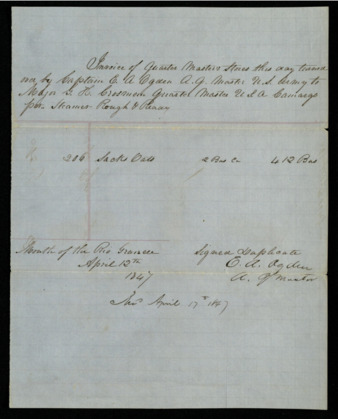 Invoice of Quarter Masters Stores this day turned
over by Captain E. A. Ogden A.Q. Master U.S. Army to
Major Quarter Master U.S.A. Camargo
per Steamer Rough &
206 Sacks Oats 2 Bus 412 Bus
Mouth of the Rio Grande Signed Duplicate
April 12th E. A. Ogden
1847 A. Q. Master
April 1847